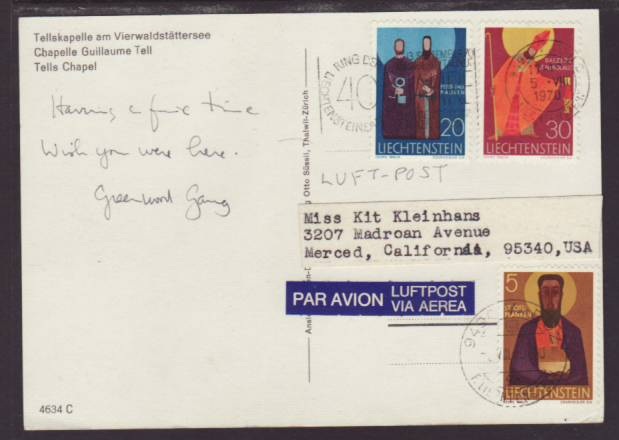 Tellskapelle am Vierwaldstättersee
Chapelle Guillaume Tell
Tells Chapel
Having a fine time
Wish you were here.
Greenwood Gang
20
LIECHTENSTEIN
30
LIECHTENSTEIN
40
1970
LUFT-POST
Otto Süssli, Thalwil-Zürich
Miss Kit Kleinhans
3207 Madroan Avenue
Merced, California, 95340,USA
PAR AVION
LUFTPOST
VIA AEREA
5
PLANKEN
LIECHTENSTEIN
4634 C